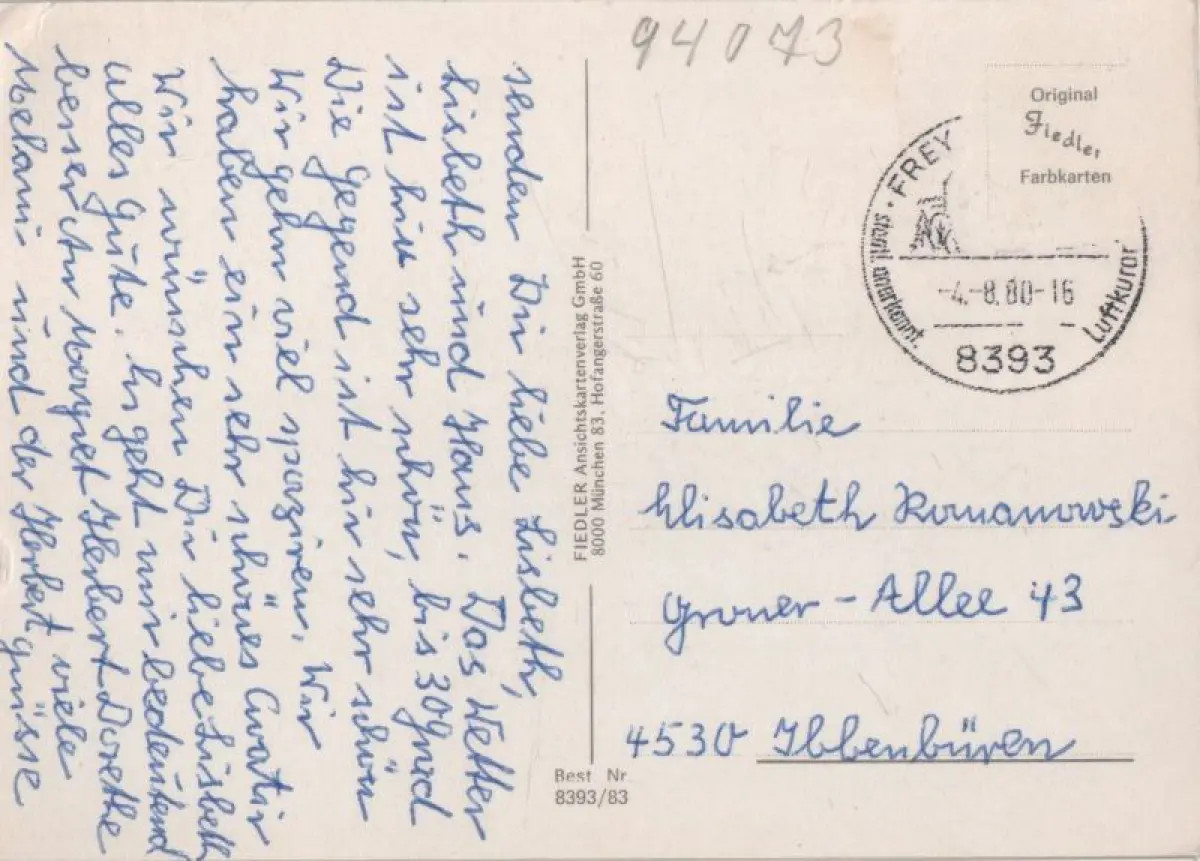 94073
senden Dir liebe Lisbeth,
Lisbeth und Hans. Das Wetter
ist hir sehr schön, bis 30 grad
Die gegend ist hir sehr schön
Wir gehn viel spaziren. Wir
haben ein sehr schönes Qwatir
Wir wünschen Dir liebe Lisbeth
alles gute. Es geht mir bedeutend
besser Margret Herbert Dorethe
Melani und der Herbert viele
güsse
FIEDLER Ansichtskartenverlag GmbH
8000 München 83, Hofangerstraße 60
Best Nr.
8393/83
Original
Fiedler
Farbkarten
staatl. anerkannt. · FREY
Luftkuror
-4.-8.80-16
8393
Familie
Elisabeth Romanowski
Groner-Allee 43
4530 Ibbenbüren